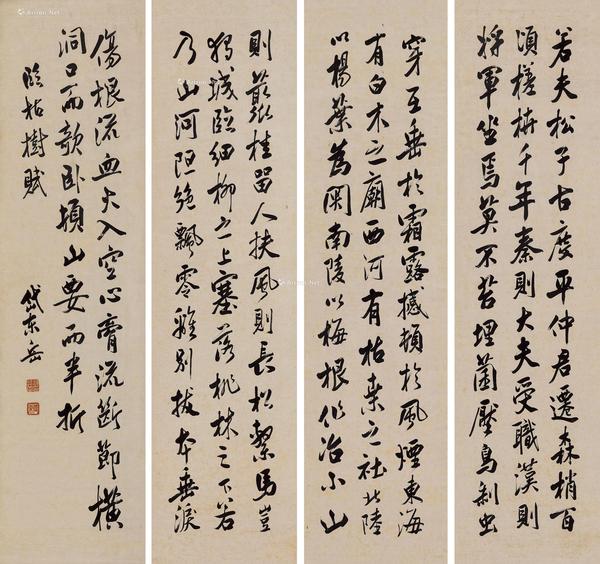 若夫松子古度平仲君遷森梢百
頃槎枿千年秦則大夫受職漢則
將軍坐焉莫不苔埋菌壓鳥剝虫
穿互垂於霜露撼頓於風煙東海
有白木之廟西河有枯桒之社北陸
以楊葉為関南陵以梅根作冶小山
則叢桂留人扶風則長松繫馬豈
獨城臨細柳之上塞落桃林之下若
乃山河阻絶飄零離別拔本垂淚
傷根流血火入空心膏流斷節橫
洞口而欹卧頓山要而半折
臨枯樹賦
岱東岳